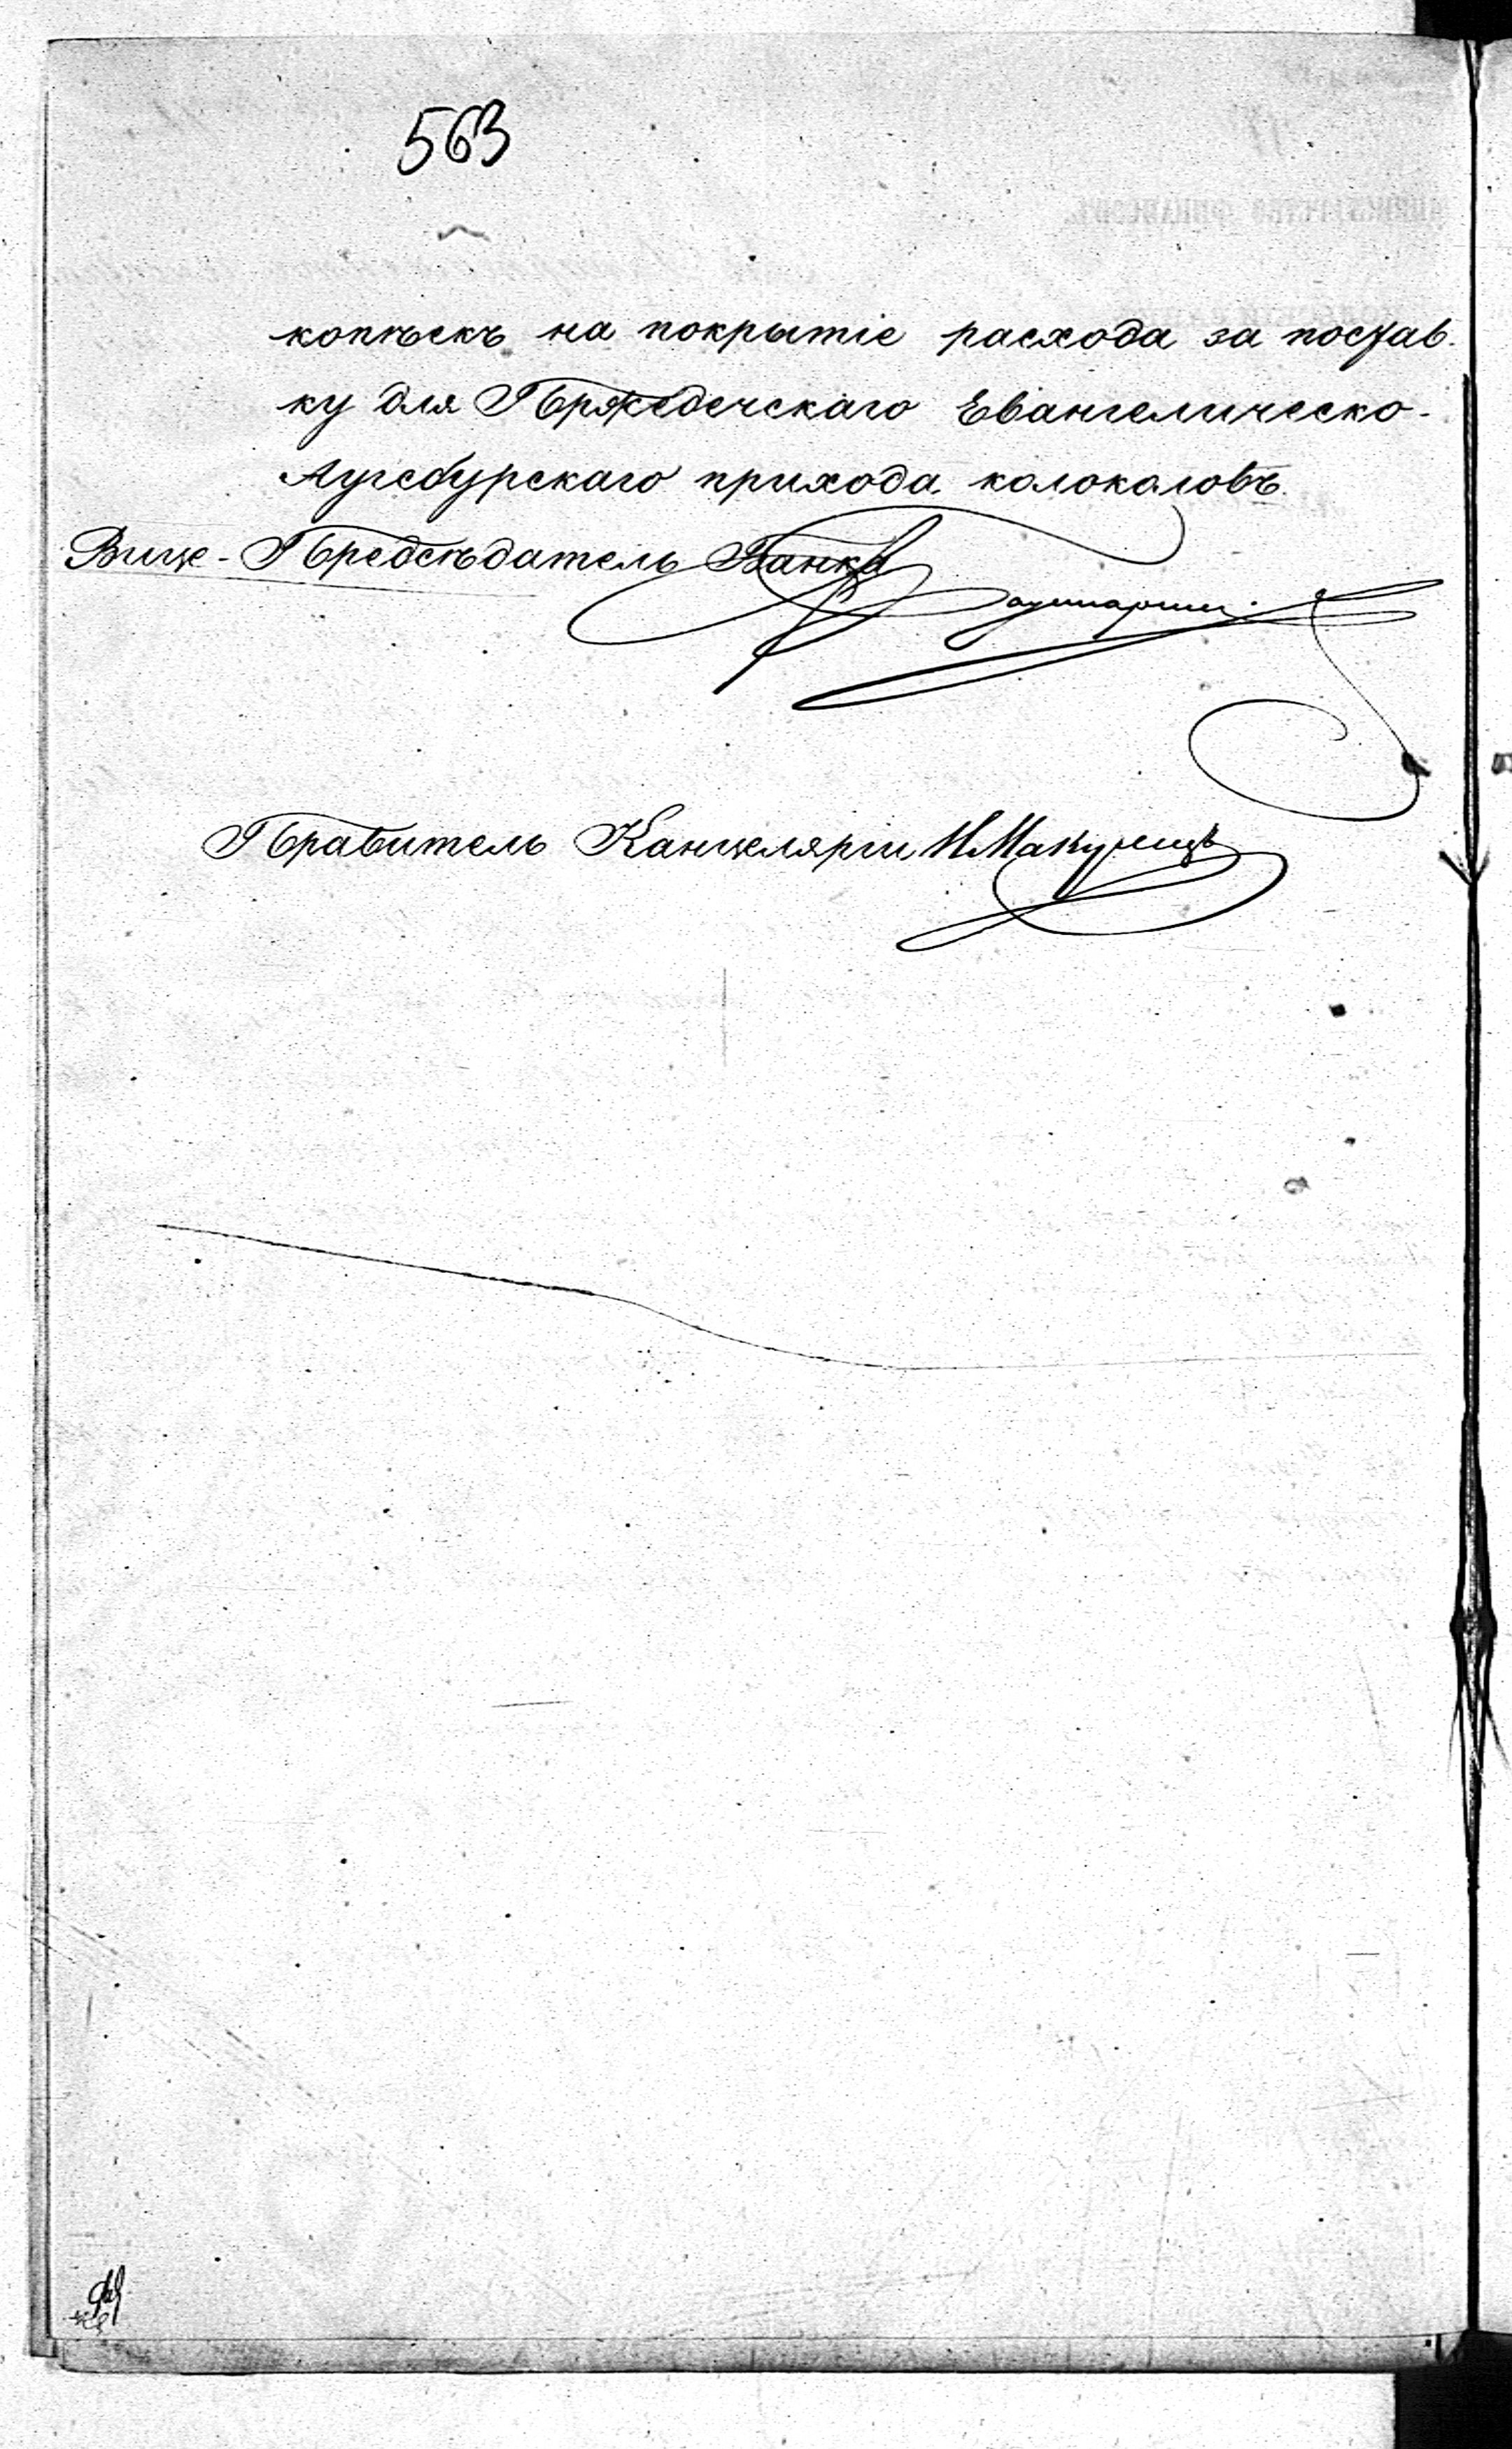 563
копѣекъ на покрытіе расхода за постав-
ку для Пржедечскаго Евангелическо-
Аугсбурскаго прихода колоколовъ.
Вице-Предсѣдатель Банка
Правитель Канцеляріи И